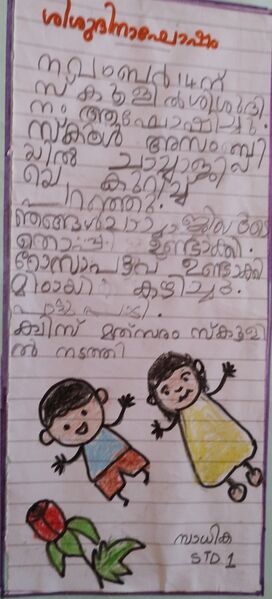 ശിശുദിനാഘോഷം
നവംബർ 14 ന്
സ്കൂളിൽ ശിശുദി
നം ആഘോഷിച്ചു.
സ്കൂൾ അസംബ്ലി
യിൽ ചാച്ചാജിയെ
കുറിച്ച്
പറഞ്ഞു.
ഞങ്ങൾ
തൊപ്പി ഉണ്ടാക്കി.
റോസാപൂവ് ഉണ്ടാക്കി
മിഠായി കഴിച്ചു.
പാട്ട് പാടി.
ക്വിസ് മത്സരം സ്കൂളി
ൽ നടത്തി
സാധിക
STD 1